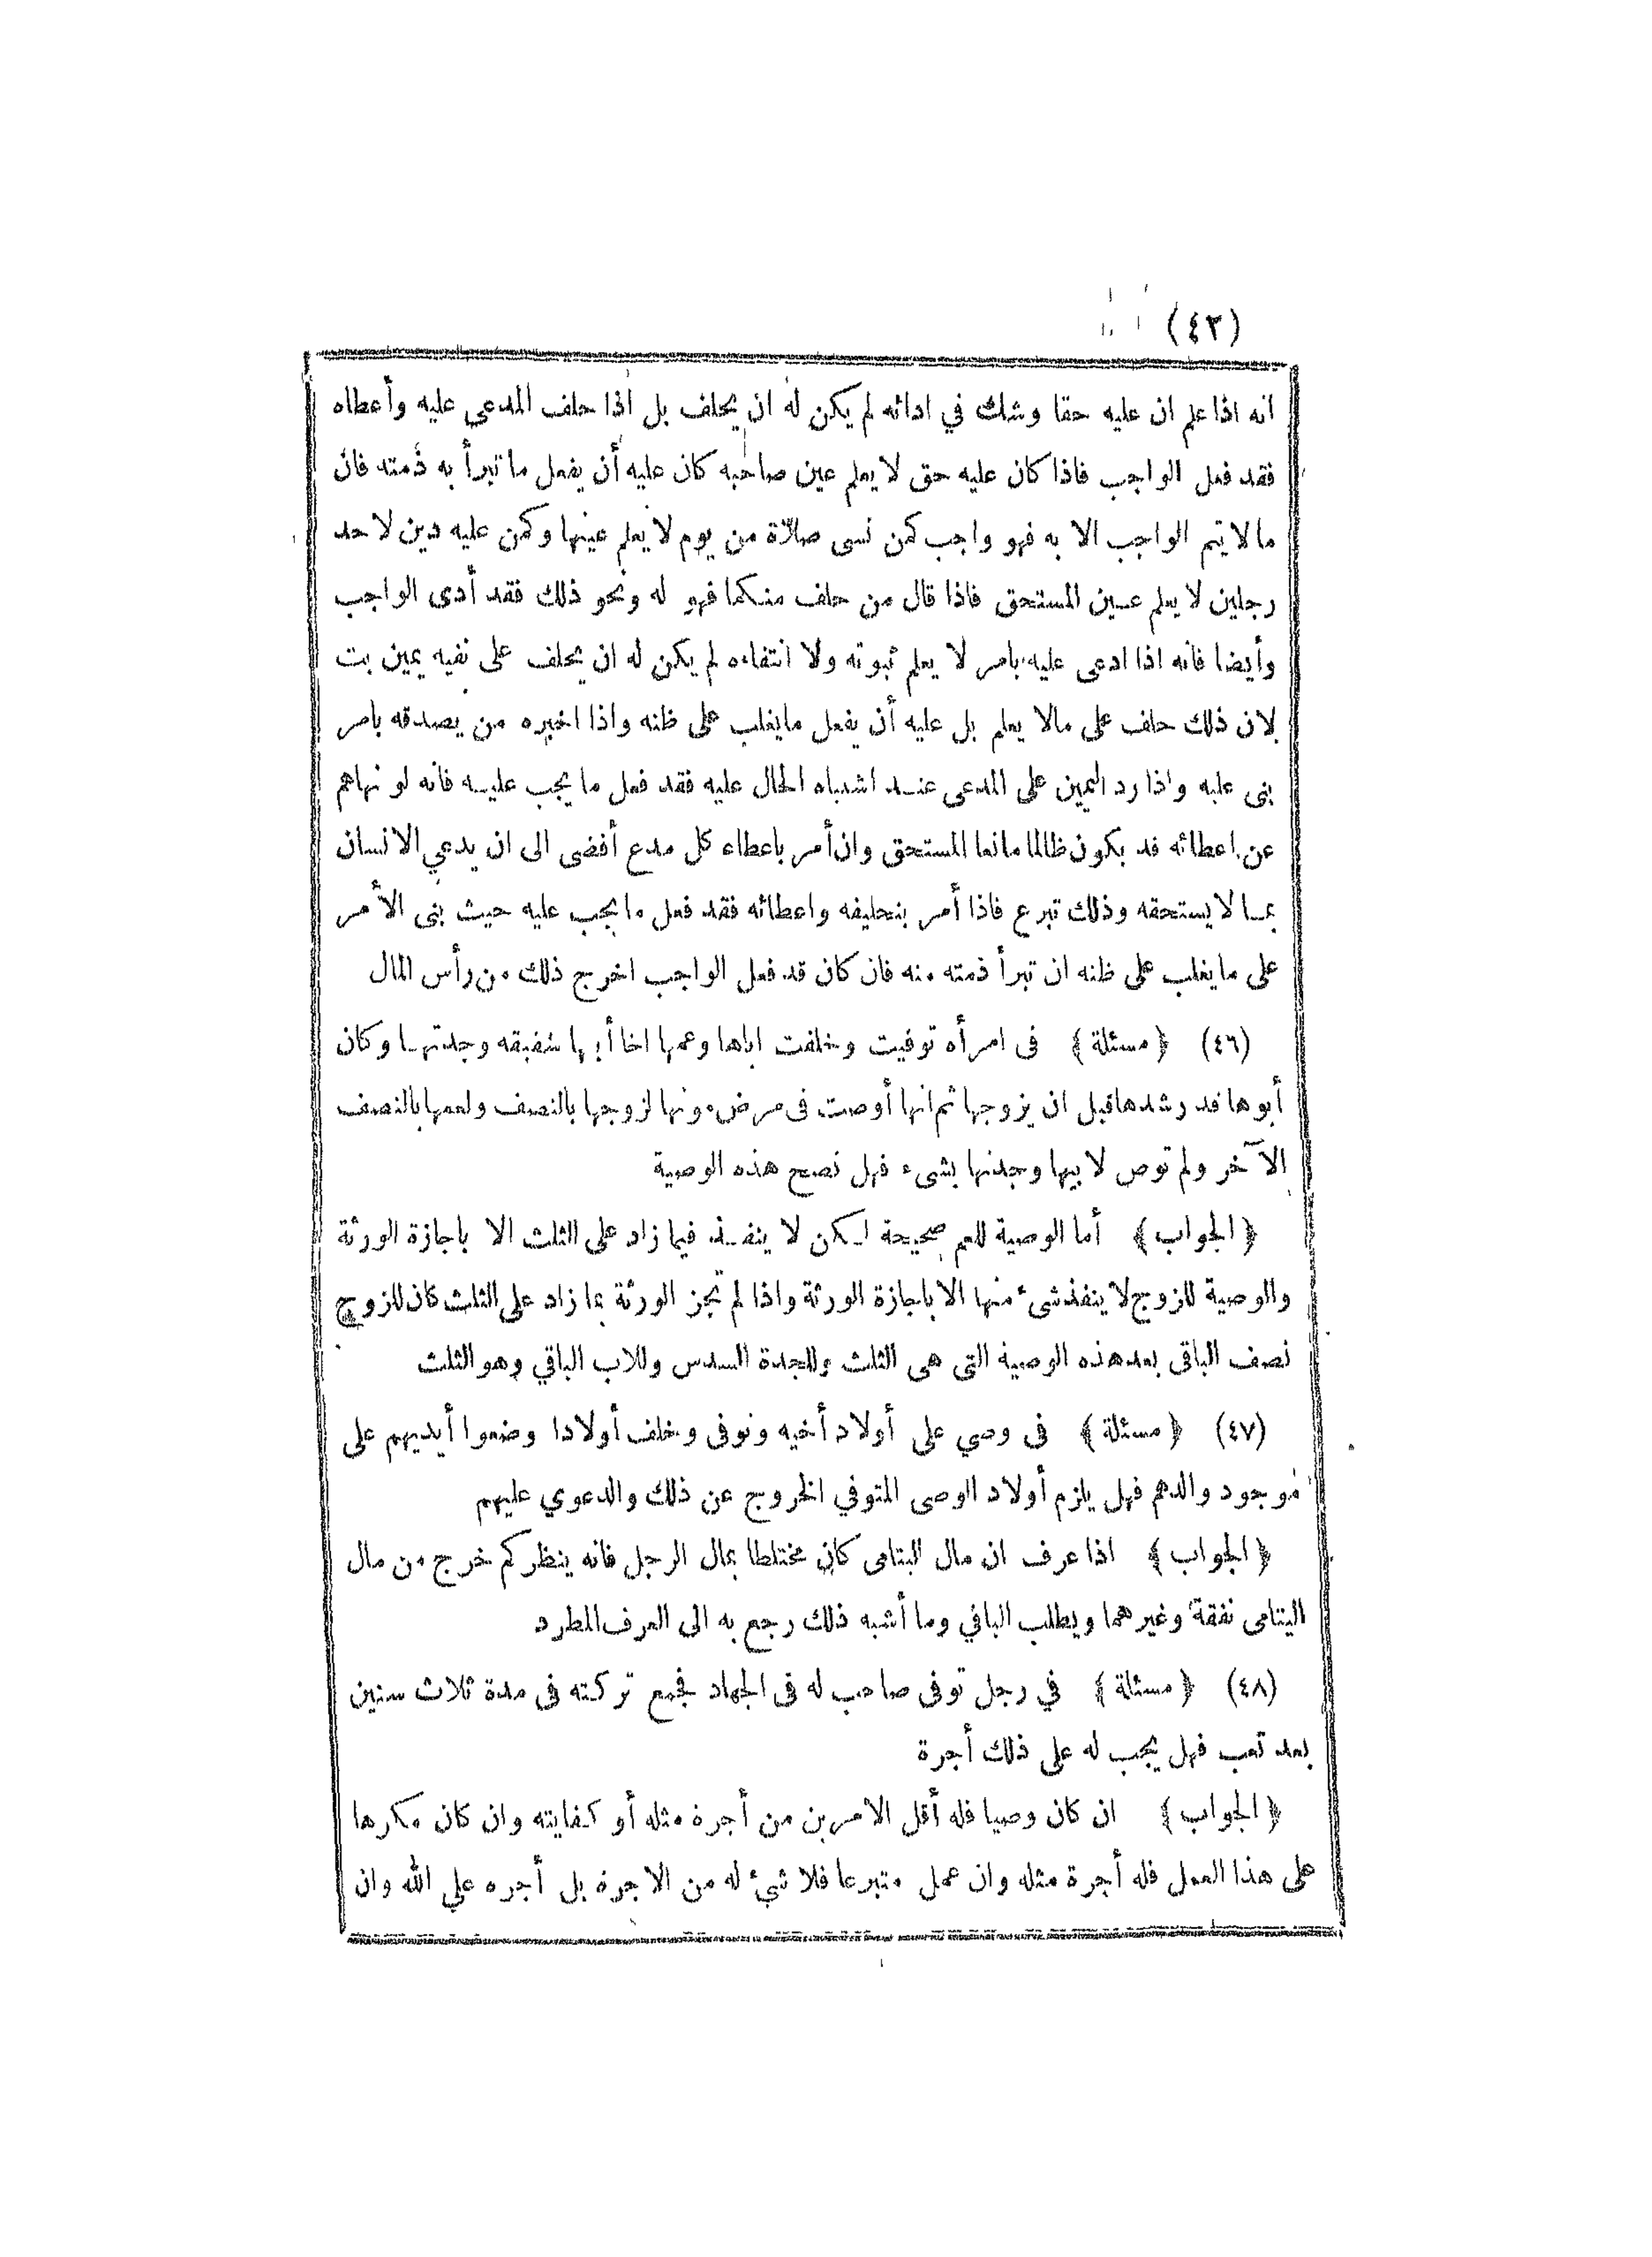 (٤٢)
انه اذا علم ان عليه حقا وشك في ادائه لم يكن له ان يحلف بل اذا حلف المدعى عليه وأعطاه
فقد فعل الواجب فاذا كان عليه حق لا يعلم عين صاحبه كان عليه أن يفعل ما تبرأ به ذمته فان
ما لا يتم الواجب الا به فهو واجب كمن نسى صلاة من يوم لا يعلم عينها وكمن عليه دين لاحد
رجلين لا يعلم عين المستحق فاذا قال من حلف منكما فهو له ونحو ذلك فقد أدى الواجب
وأيضا فانه اذا ادعى عليه بامر لا يعلم ثبوته ولا انتفاءه لم يكن له ان يحلف على نفيه يمين بت
لان ذلك حلف على مالا يعلم بل عليه أن يفعل مايغلب على ظنه واذا اخبره من يصدقه بامر
بنى عليه واذا رد اليمين على المدعى عند اشتباه الحال عليه فقد فعل ما يجب عليه فانه لو نهاهم
عن اعطائه قد يكون ظالما مانعا للمستحق وان أمر باعطاء كل مدع أفضى الى ان يدعي الانسان
بما لا يستحقه وذلك تبرع فاذا أمر بتحليفه واعطائه فقد فعل ما يجب عليه حيث بنى الأمر
على ما يغلب على ظنه ان تبرأ ذمته منه فان كان قد فعل الواجب اخرج ذلك من رأس المال
(٤٦) ﴿ مسئلة ﴾ فى امرأه توفيت وخلفت اباها وعمها اخا أبيها شقيقه وجدتها وكان
أبوها قد رشدها قبل ان يزوجها ثم انها أوصت فى مرض موتها لزوجها بالنصف ولعمها بالنصف
الآخر ولم توص لابيها وجدتها بشىء فهل تصح هذه الوصية
﴿ الجواب ﴾ أما الوصية للعم صحيحة لكن لا ينفذ فيما زاد على الثلث الا باجازة الورثة
والوصية للزوج لا ينفذ شىء منها الا باجازة الورثة واذا لم تجز الورثة بما زاد على الثلث كان للزوج
نصف الباقى بعد هذه الوصية التى هى الثلث وللجدة السدس وللاب الباقي وهو الثلث
(٤٧) ﴿ مسئلة ﴾ فى وصي على أولاد أخيه وتوفى وخلف أولادا وضعوا أيديهم على
موجود والدهم فهل يلزم أولاد الوصى المتوفي الخروج عن ذلك والدعوي عليهم
﴿ الجواب ﴾ اذا عرف ان مال اليتامى كان مختلطا بمال الرجل فانه ينظر كم خرج من مال
اليتامى نفقة وغيرهما ويطلب الباقي وما أشبه ذلك رجع به الى العرف المطرد
(٤٨) ﴿ مسئلة ﴾ في رجل توفى صاحب له فى الجهاد فجمع تركته فى مدة ثلاث سنين
بعد تعب فهل يجب له على ذلك أجرة
﴿ الجواب ﴾ ان كان وصيا فله أقل الامرين من أجرة مثله أو كفايته وان كان مكرها
على هذا العمل فله أجرة مثله وان عمل متبرعا فلا شىء له من الاجرة بل أجره علي الله وان